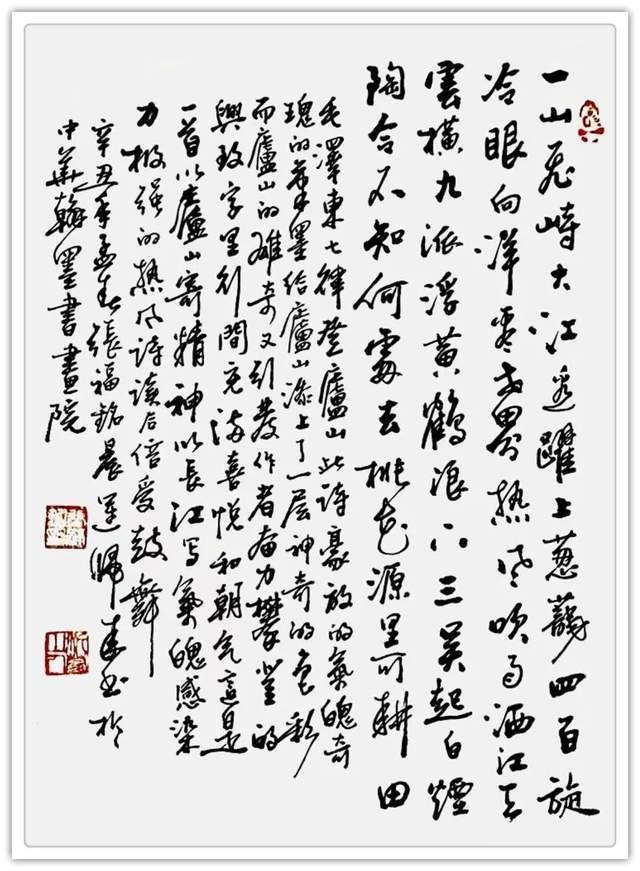 一山飞峙大江边躍上葱蘢四百旋
冷眼向洋看世界热风吹雨洒江天
雲横九派浮黄鶴浪下三吴起白煙
陶令不知何處去桃花源里可耕田
毛澤東七律登廬山此诗豪放的氣魄奇
瑰的笔墨给廬山添上了一层神奇的色彩
而廬山的雄奇又引發作者奋力攀登的
興致字里行間充满喜悦和朝气這是
一首以廬山寄精神以长江写氣魄感染
力极强的热风诗读后倍受鼓舞
辛丑年孟春張福銘晨運歸来书於
中華翰墨書畫院